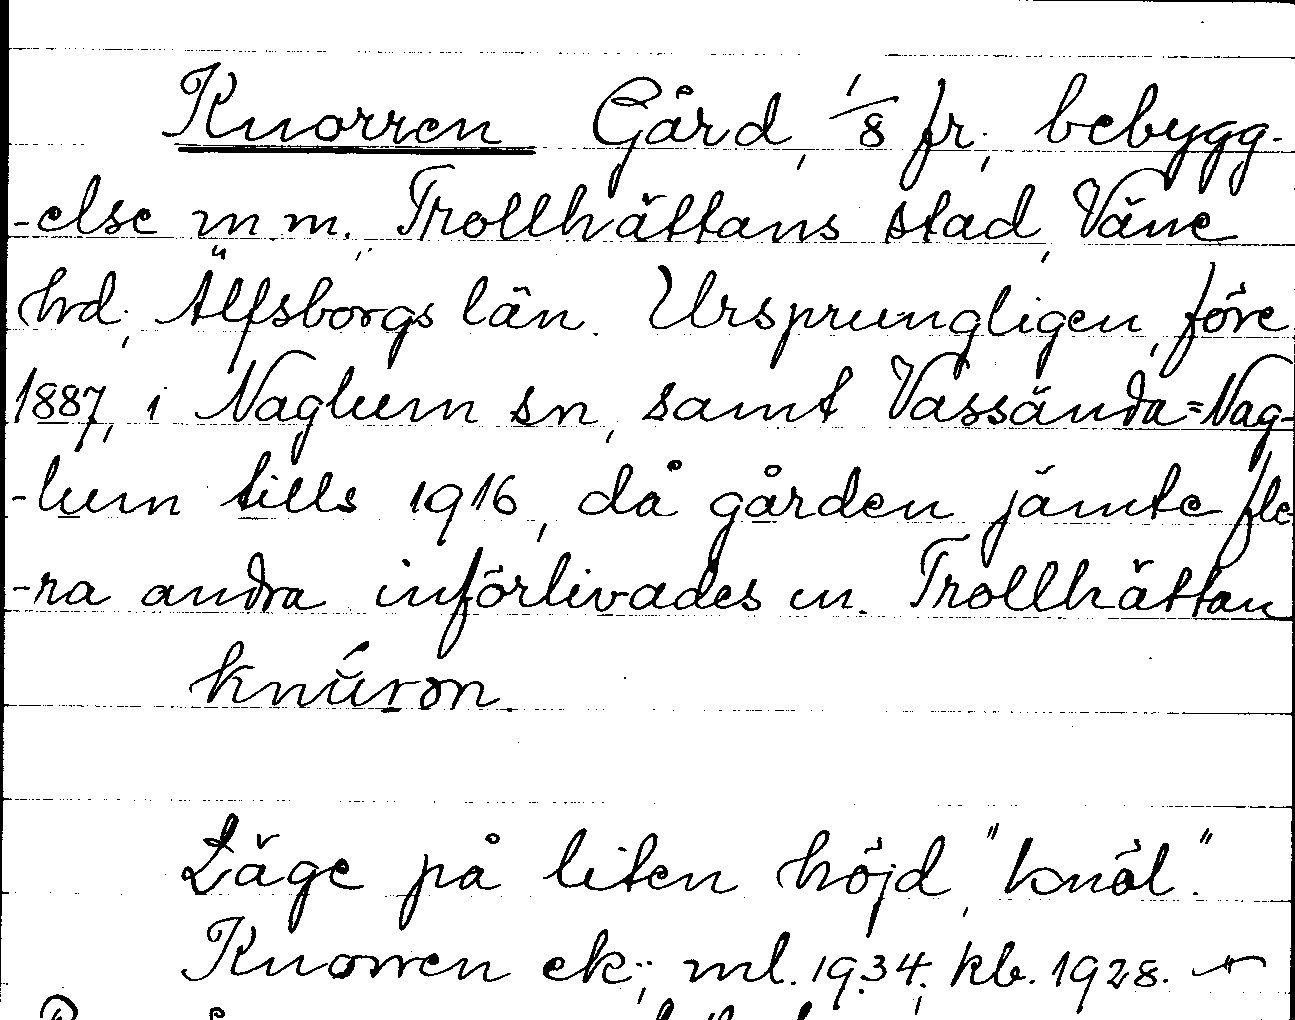 Knorren Gård, 1/8 fr., bebygg-
-else m m., Trollhättans stad, Väne
hd., Älfsborgs län. Ursprungligen, före
1887, i Naglum sn, samt Vassända=Nag-
-lum tills 1916, då gården jämte fle-
-ra andra införlivades m. Trollhättan
knúron.
Läge på liten höjd, "knöl."
Knorren ek.; ml. 1934; kb. 1928.